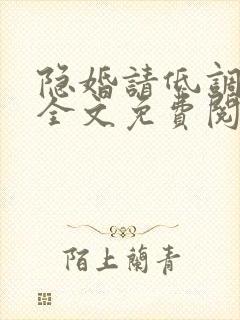 隐婚請低調
全文免費閱
陌上蘭青